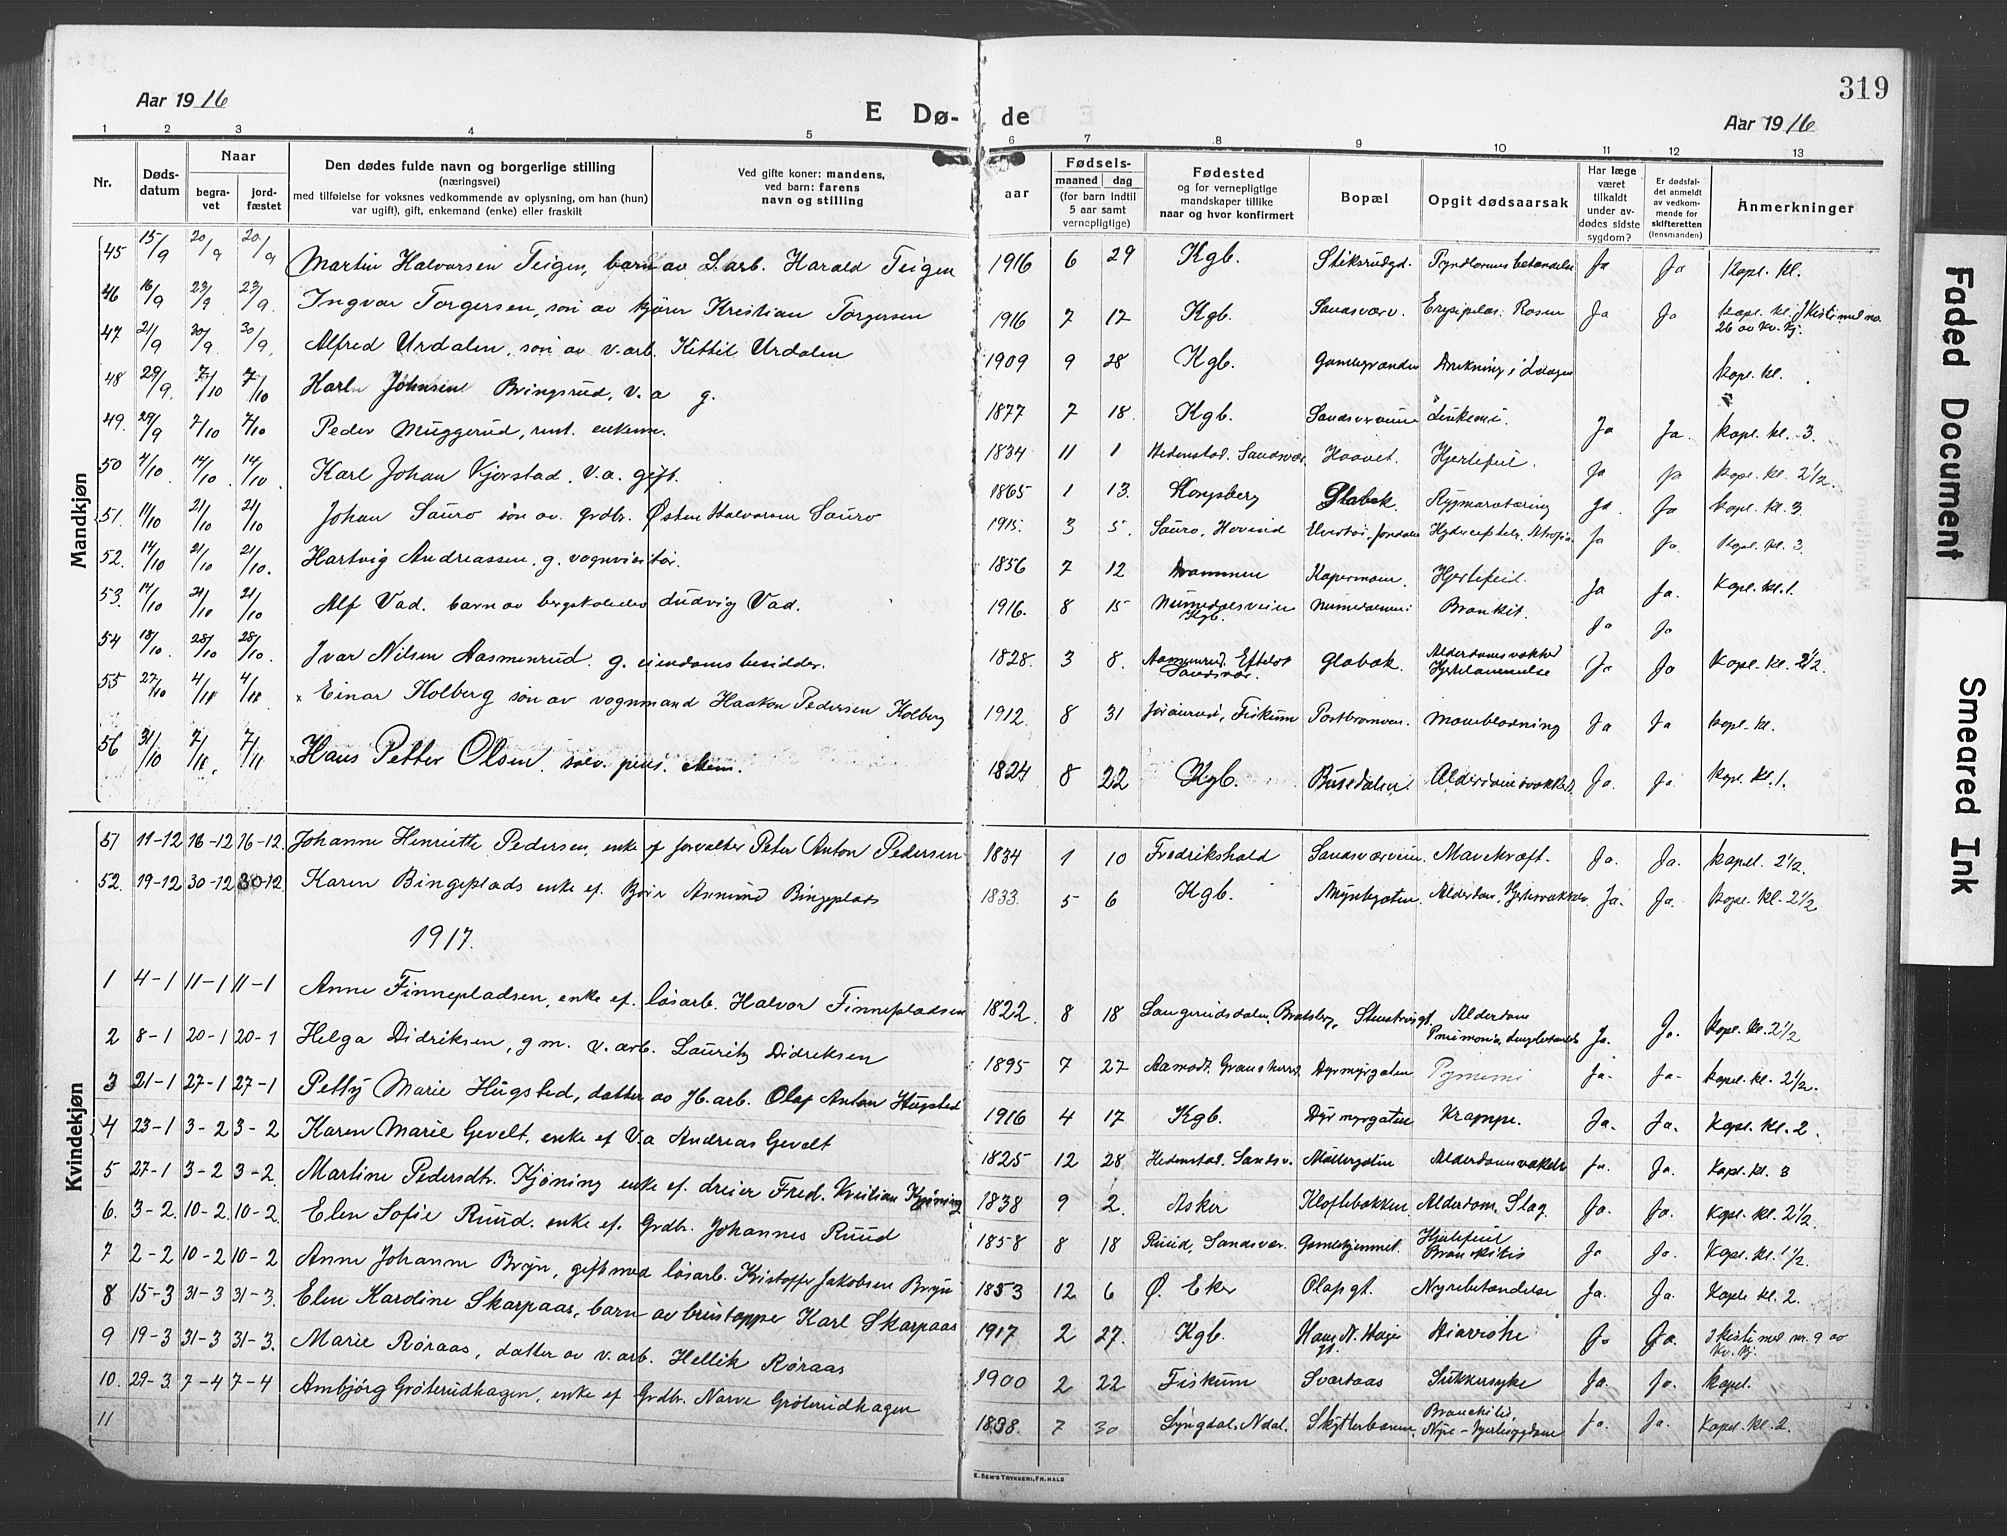 319
Aar 1916
E Dø-
de
Aar 1916
1 2 3 4 5 6 7 8 9 10 11 12 13
Nr.
Døds-
datum
Naar
begra-
vet
jord-
fæstet
Den dødes fulde navn og borgerlige stilling
(næringsvei)
med tilføielse for voksnes vedkommende av oplysning, om han (hun)
var ugift), gift, enkemand (enke) eller fraskilt
Ved gifte koner: mandens,
ved barn: farens
navn og stilling
Fødsels-
aar
maaned
dag
(for barn indtil
5 aar samt
vernepligtige)
Fødested
og for vernepligtige
mandskaper tillike
naar og hvor konfirmert
Bopæl
Opgit dødsaarsak
Har læge
været
tilkaldt
under av-
dødes sidste
sygdom?
Er dødsfal-
det anmeldt
av vedkom-
mende for
skifteretten
(lensmanden)
Anmerkninger
Mandkjøn
45 15/9 20/9 20/9 Martin Halvorsen Teigen, barn av S.arb. Harald Teigen 1916 6 29 Kgb. Ja Ja Kapel. kl.
46 16/9 23/9 23/9 Ingvar Torgersen, søn av kjører Kristian Torgersen 1916 7 17 Kgb. Sandsværv. Erysipelas. Rosen Ja Ja
26 av Kv. kj.
47 21/9 30/9 30/9 Alfred Urdalen, søn av v.arb. Kittil Urdalen 1909 9 28 Kgb. Kapel. kl.
48 29/9 7/10 7/10 Karl Johnsen Bringsrud, v.a g. 1877 7 18 Kgb. Sandsværveien Leukemi. Ja Ja. Kapel. kl. 3.
49. 29/9 7/10 7/10 Peder Muggerud, rent. enkem. 1834 11 1 Hedenstad, Sandsvær. Haavet. Hjertefeil. Ja Ja Kapel. kl. 2½.
50 4/10 14/10 14/10 Karl Johan Kjørstad, v.a. gift. 1865 1 13. Kongsberg Glabak. Rygmarvstæring Ja. Ja Kapel. kl. 3
51. 14/10 21/10 21/10 Johan Sauro søn av grdbr. Østen Halvorsen Sauro 1915. 3 5. Sauro, Hovind Ja Ja. Kapel. kl. 3.
52. 14/10 21/10 21/10. Hartvig Andreassen. g. vognvisitør. 1856 7 12 Drammen Kapermoen. Hjertefeil. Ja Ja. Kapel. kl. 1.
53. 17/10 21/10 21/10 Alf Vad. barn av bergskoleelev Ludvig Vad. 1916. 8 15 Numedalsveien
Kgb. Bronkit. Ja Ja
54 18/10 28/10 28/10. Ivar Nilsen Aasmenrud. g. eiendomsbesidder. 1828. 3 8. Efteløt
Sandsvær. Glabak. Alderdomssvakhed
Hjertelammelse Ja Ja Kapel. kl. 2½.
55 27/10 4/11 4/11. × Einar Kolberg søn av vognmand Haakon Pedersen Kolberg 1912. 8 31 Fiskum Maveblødning Ja Ja Kapel. kl.
56 31/10 7/11. 7/11 × Hans Petter Olsen. sølv. pens. ekem. 1824 8 22 Kgb. Alderdomssvakhed. Ja. Ja. Kapel. kl. 1.
Kvindekjøn
51 11-12 16-12 16-12. Johanne Henriette Pedersen, enke ef forvalter Peter Anton Pedersen 1834 1 10 Fredrikshald Sandsværveien. Mavekræft. Ja. Ja. Kapel. 2½.
52. 19-12 30-12 30-12. Karen Bingeplads enke ef. Anmund Bingeplads 1833. 5 6 Kgb. Myntgaten. Ja. Ja. Kapel. kl. 2½
1917.
1 4-1 11-1 11-1 Anne Finnepladsen, enke ef. løsarb. Halvor Finnepladsen 1822. 8 18 Alderdom
Ja. Ja. Kapel. kl. 2½
2 8-1 20-1 20-1 Helga Didriksen, g m. v.arb. Lauritz Didriksen 1895 7 27 Dyrmyrgaten Ja. Ja. Kapel. kl. 2½.
3 21-1 27-1 27-1 Petty Marie Hugsted, datter av Jb.arb. Olaf Anton Hugsted 1916 4 17 Kgb. Dyrmyrgaten Krampe. Ja. Ja. Kapel. kl. 2.
4 23-1 3-2 3-2 Karen Marie Gevelt, enke ef v.a Andreas Gevelt 1825 12 28 Hedenstad. Sandsv. Møllergaten Ja. Ja. Kapl. kl. 3
5 27-1 3-2 3-2. Martine Pedersdtr. Kjøning enke ef. dreier Fred. Kristian Kjøning 1838 9 2. Asker Kloftebakken Alderdom, Slag. Ja. Ja. Kapel. kl. 2½.
6. 3-2 10-2 10-2. Elen Sofie Ruud. enke ef. Grdbr. Johannes Ruud 1858 8 18 Ruud, Sandsvær. Gamlehjemmet. Hjertefeil
Bronkitis Ja Ja. Kapel. kl. 1½.
7 2-2 10-2 10-2 Anne Johanne Bryn, gift med løsarb. Kristoffer Jakobsen Bryn 1853 12 6 Ø. Eker Olafsgt. Nyrebetændelse Ja. Ja. Kapel. kl. 2.
8 15-3 31-3 31-3. Elen Kardine Skarpaas, barn av Karl Skarpaas 1917 2 27. Kgb. Ja Ja. I kiste med nr. 9 av
Kv. kj.
9 19-3 31-3 31-3. Marie Røraas, datter av v.arb. Hellik Røraas 1900 2 22 Fiskum Svartaas Sukkersyke Ja. Ja. Kapel.
10. 29-3. 7-4 7-4 Ambjørg Grøterudhagen, enke ef Grdbr. Narve Grøterudhagen 1838. 7 30 Lyngdal, N.dal. Bronchitis
Ja. Ja. Kapel. kl. 2.
11
E. SEM'S TRYKKERI, FR.HALD
Faded Document
Smeared Ink